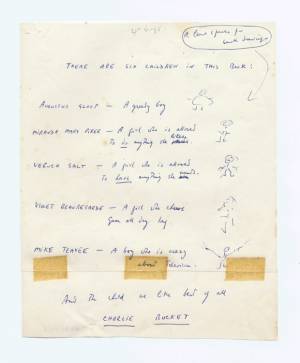 A
small drawings
THERE ARE SIX CHILDREN IN THIS BOOK:
AUGUSTUS GLOOP — A greedy boy
MIRANDA MARY PIKER — A girl who is allowed
to do anything she likes
VERUCA SALT — A girl who is allowed
to have anything she wants.
VIOLET BEAUREGARDE — A girl who chews
Gum all day long
MIKE TEAVEE — A boy who is crazy
about Television.
And the child we like best of all
CHARLIE BUCKET